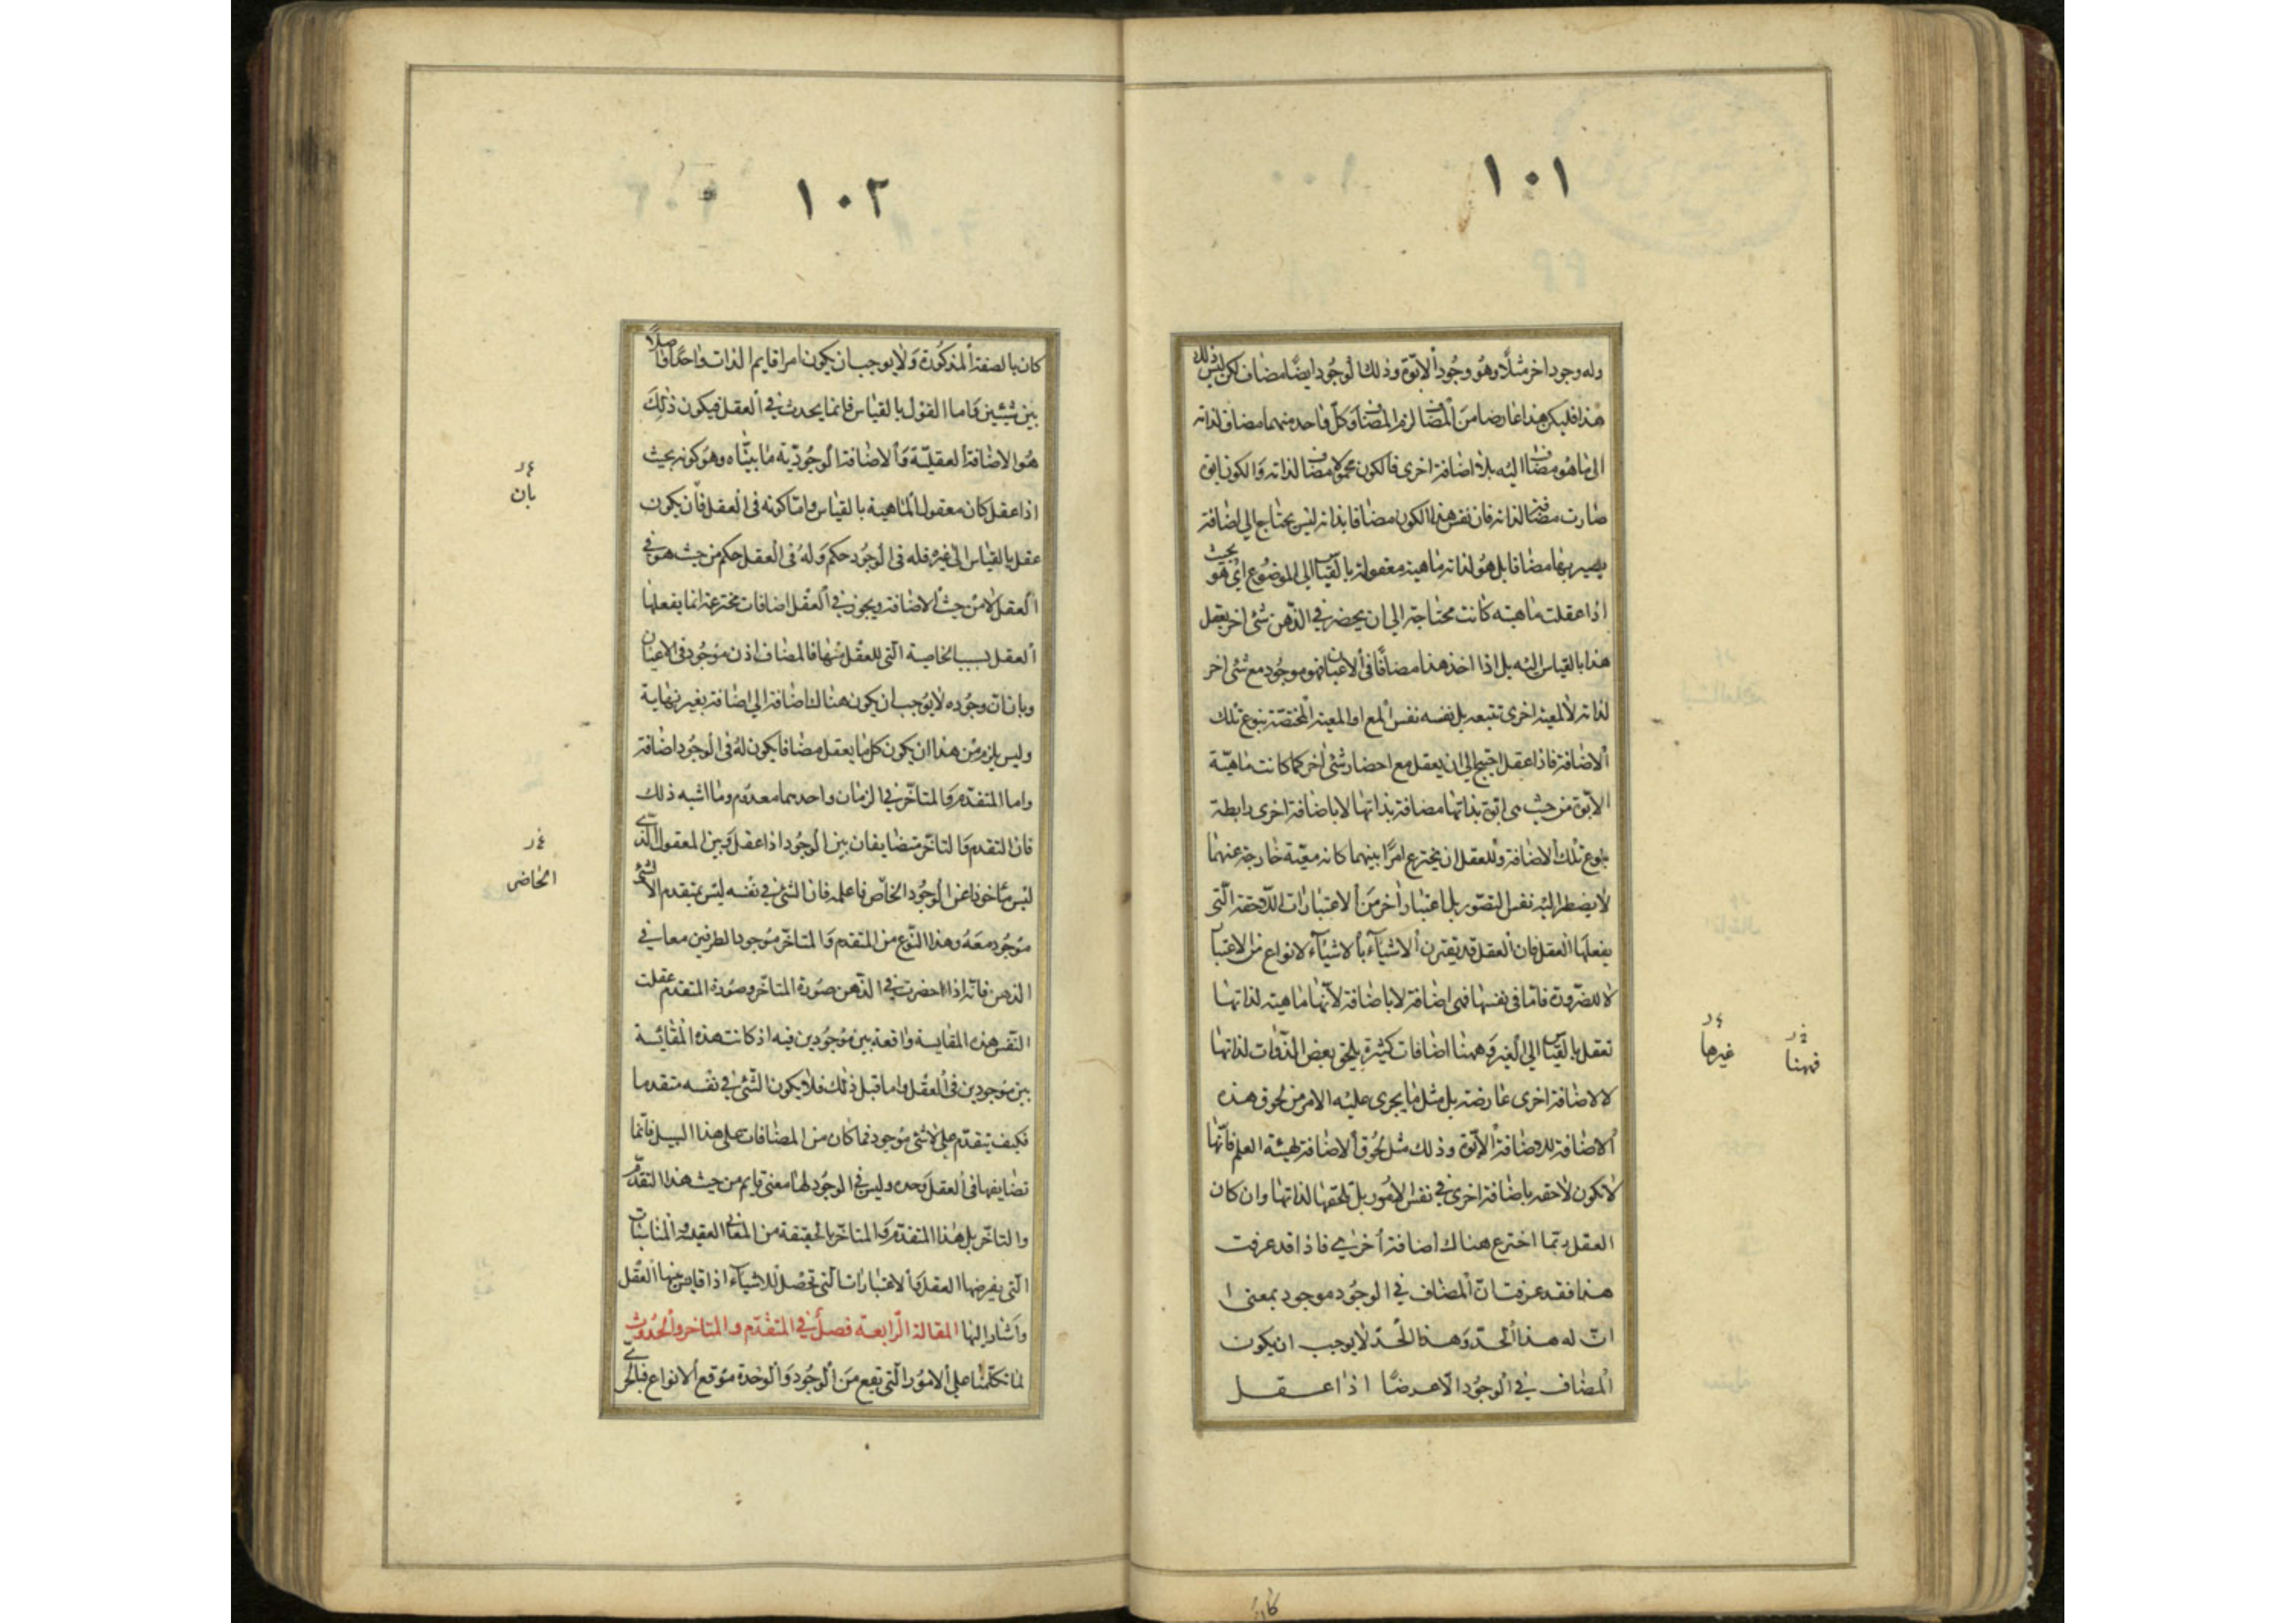 ١٠١
وله وجود اخر مثلا وهو وجود الابوة وذلك الوجود ايضا مضاف لكن ليس ذلك
هذا فليكن هذا عارضا من المضاف لزم المضاف وكل واحد منهما مضاف لذاته
الى ما هو مضاف اليه بلا اضافة اخرى فالكون محمولا مضاف لذاته والكون ابوة
مضاف لذاته فان نفس هذا الكون مضافا بذاته ليس يحتاج الى اضافة
يصير بها مضافا بل هو لذاته ماهية معقولة بالقياس الى الموضوع اى هو بحيث
اذا عقلت ماهيته كانت محتاجة الى ان يحضر في الذهن شئ اخر يعقل
هذا بالقياس اليه بل اذا اخذ هذا مضافا في الاعيان فهو موجود مع شئ اخر
لذاته لا لمعية اخرى تتبعه بل نفسه نفس المع او المعية المخصصة بنوع تلك
الاضافة فاذا عقل احتيج الى ان يعقل مع احضار شئ اخر كما كانت ماهية
الابوة من حيث هي ابوة بذاتها مضافة بذاتها لا باضافة اخرى رابطة
بنوع تلك الاضافة وللعقل ان يخترع امرا بينهما كانه معية خارجة عنهما
لا يضطر اليه نفس التصور بل اعتبار اخر من الاعتبارات اللاحقة التى
يفعلها العقل فان العقل قد يقترن الاشياء بالاشياء لانواع من الاعتبا
لا للضرورة فاما في نفسها فهى اضافة لا باضافة لانها ماهية لذاتها
تعقل بالقياس الى الغير وههنا اضافات كثيرة يلحق بعض الذوات لذاتها
لا لاضافة اخرى عارضة بل مثل ما يجرى عليه الامر من لحوق هذه
الاضافة للاضافة الابوة وذلك مثل لحوق الاضافة لهيئة العلم فانها
لا تكون لاحقة باضافة اخرى في نفس الامور بل تلحقها لذاتها وان كان
العقل ربما اخترع هناك اضافة اخرى فاذا قد عرفت
هذا فقد عرفت ان المضاف في الوجود موجود بمعنى ا
ان له هذا الحد وهذا الحد لا يوجب ان يكون
المضاف في الوجود الا عرضا اذا عقل
غيرها
فههنا
كان
١٠٢
كان بالصفة المذكورة ولا يوجب ان يكون امرا قايم الذات واحدا واصلا
بين شيئين واما القول بالقياس فانما يحدث في العقل فيكون ذلك
هو الاضافة العقلية والاضافة الوجودية ما بيناه وهو كونه بحيث
اذا عقل كان معقول الماهية بالقياس واما كونه في العقل فان يكون
عقل بالقياس الى غيره فله في الوجود حكم وله في العقل حكم من حيث هو في
العقل لا من حيث الاضافة ويجوز في العقل اضافات مخترعة انما يفعلها
العقل بسبب الخاصية التى للعقل منها فالمضاف اذن موجود في الاعيان
وبان ان وجوده لا يوجب ان يكون هناك اضافة الى اضافة بغير نهاية
وليس يلزم من هذا ان يكون كل ما يعقل مضافا يكون له في الوجود اضافة
واما المتقدم والمتاخر في الزمان واحدهما معدوم وما اشبه ذلك
فان التقدم والتاخر متضايفان بين الوجود اذا عقل وبين المعقول الذى
ليس ماخوذا عن الوجود الخاص فاعلمه فان الشئ في نفسه ليس بمتقدم الا بشئ
موجود معه وهذا النوع من المتقدم والمتاخر موجود الطرفين معا في
الذهن فانه اذا احضرت في الذهن صورة المتاخر وصورة المتقدم عقلت
النفس هذه المقايسة واقعة بين موجودين فيه اذ كانت هذه المقايسة
بين موجودين في العقل واما قبل ذلك فلا يكون الشئ في نفسه متقدما
فكيف يتقدم على لا شئ موجود فما كان من المضافات على هذا السبيل فانما
تضايفها في العقل وحده وليس في الوجود لها معنى قايم من حيث هذا التقدم
والتاخر بل هذا المتقدم والمتاخر بالحقيقة من المعانى العقلية والمناسبات
التى يفرضها العقل والاعتبارات التى تحصل للاشياء اذا قايس بينها العقل
واشار اليها المقالة الرابعة فصل في المتقدم والمتاخر والحدوث
لما تكلمنا على الامور التى يقع من الوجود والوحدة موقع الانواع فبالحرى
بان
الخاضر